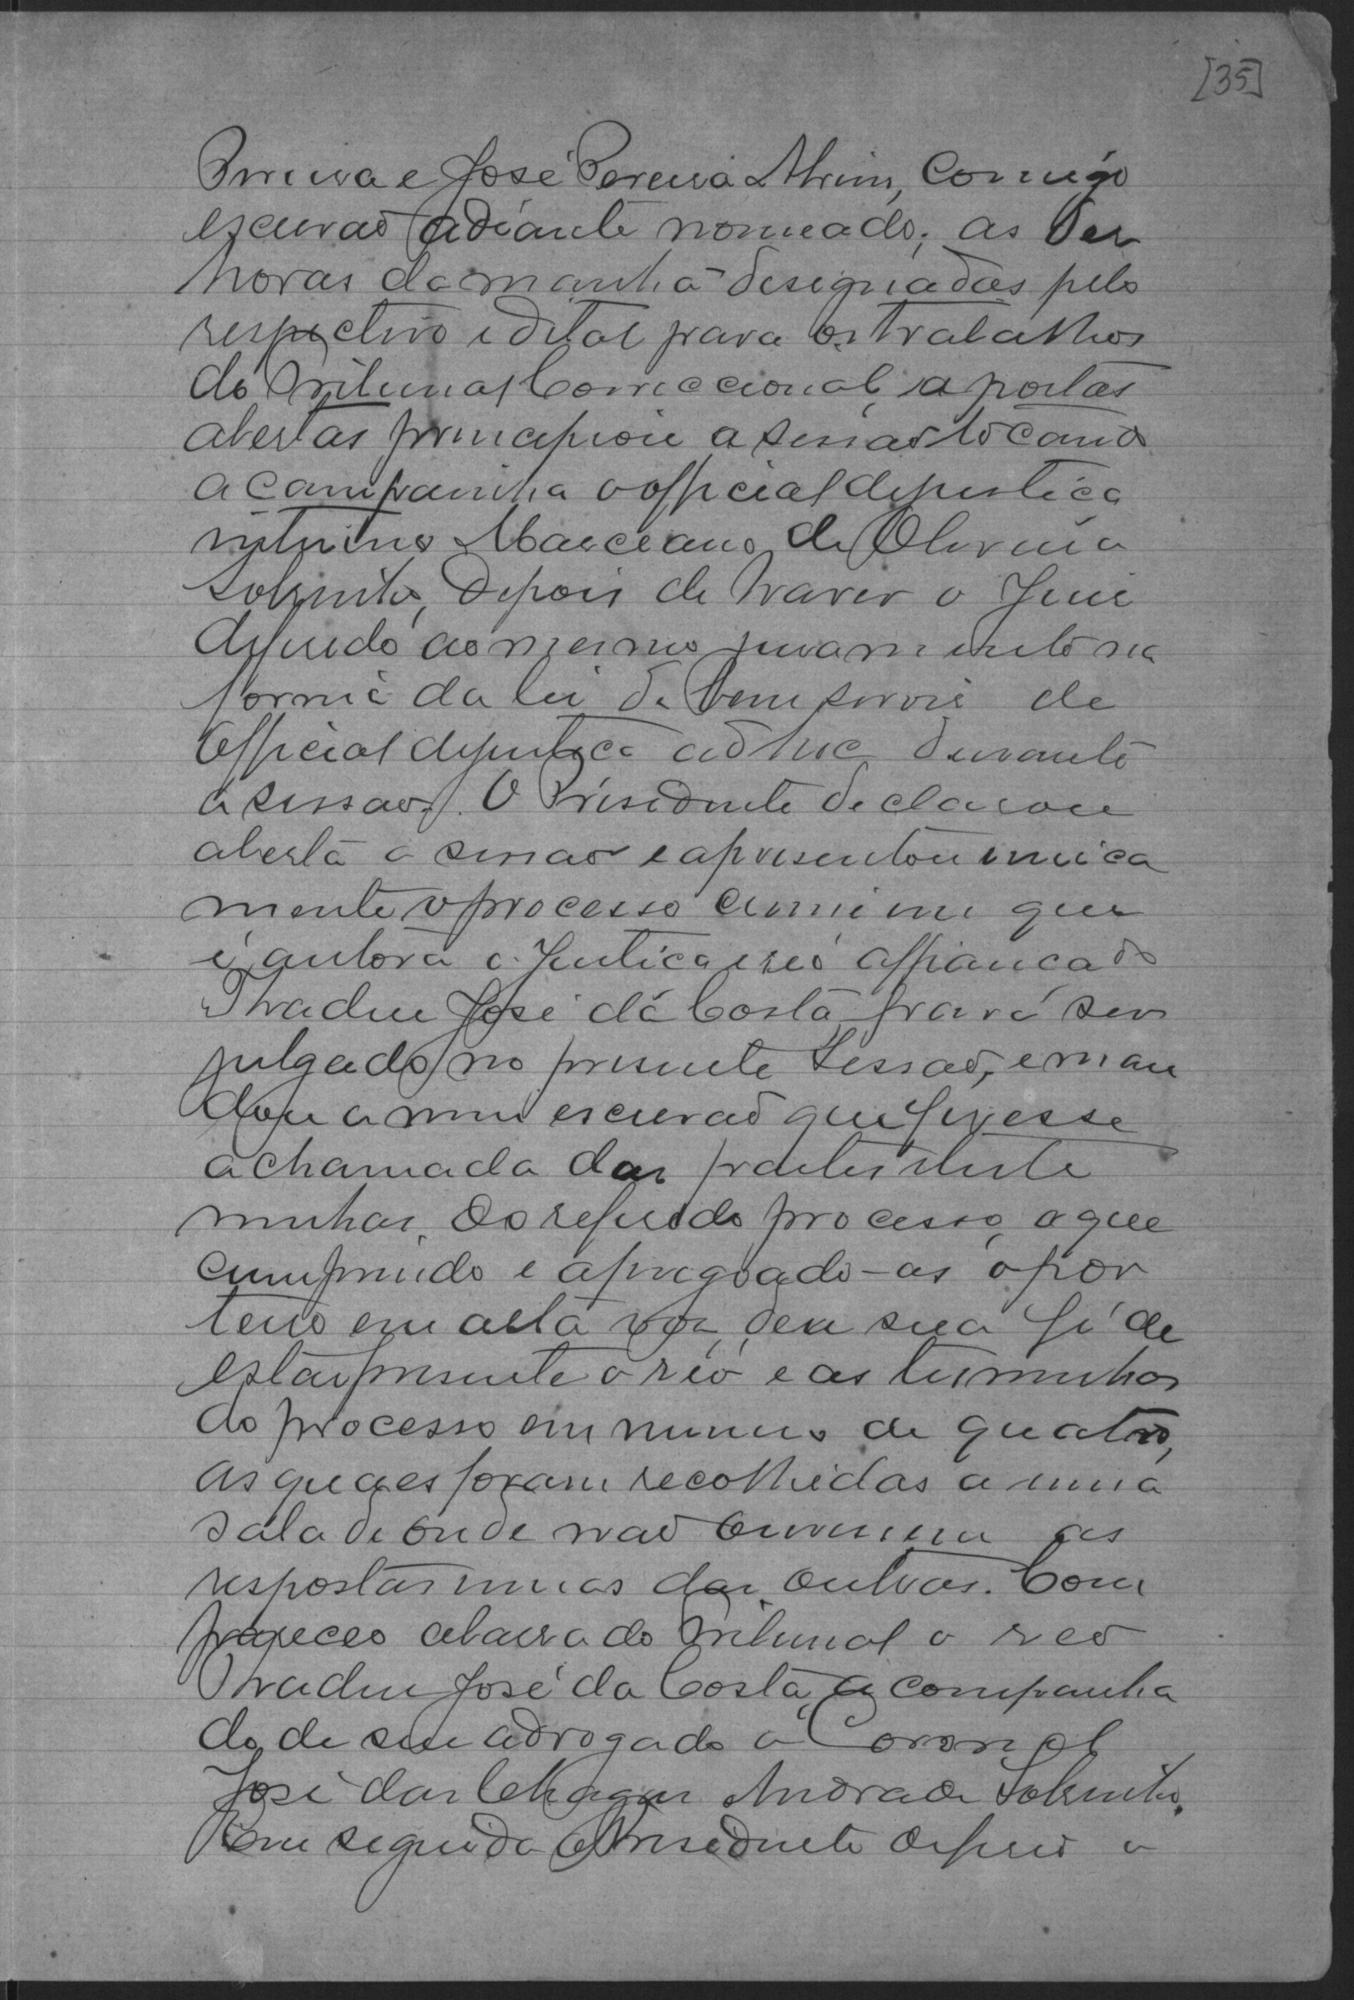 [35]
Pereira e José Pereira Alvim, comigo
escrivaõ adiante nomeado, as dez
horas da manhã designadas pelo
respectivo edital para os trabalhos
do Tribunal Correccional, a portas
abertas principiou a sessaõ tocando
a campainha o official de justiça
interino Marciano de Oliveira
Sobrinho, depois de haver o Juiz
deferido ao mesmo juramento na
forma da lei de bem servir de
official de justiça ad hoc durante
a sessaõ. O Presidente declarou
aberta a sessaõ e apresentou unica
mente o processo crime em que
é autora a Justiça e reó affiançado
Thadeu José da Costa, para ser
julgado no presente sessaõ, e man
dou a mim escrivaõ que fizesse
a chamada das partes e teste
munhas do referido processo, o que
cumprindo e apregoado-as o por
teiro em alta voz, deu sua fé de
estar presente o réo e as termunhas
do processo em numero de quatro,
as quaes foram recolhidas a uma
sala de onde naõ ouvissem as
respostas umas das outras. Com
pareceo a barra do Tribunal o reo
Thadeu José da Costa, acompanha
do de seu advogado o Coronel
José das Chagas Andrade Sobrinho.
Em seguida o Presidente deferio o